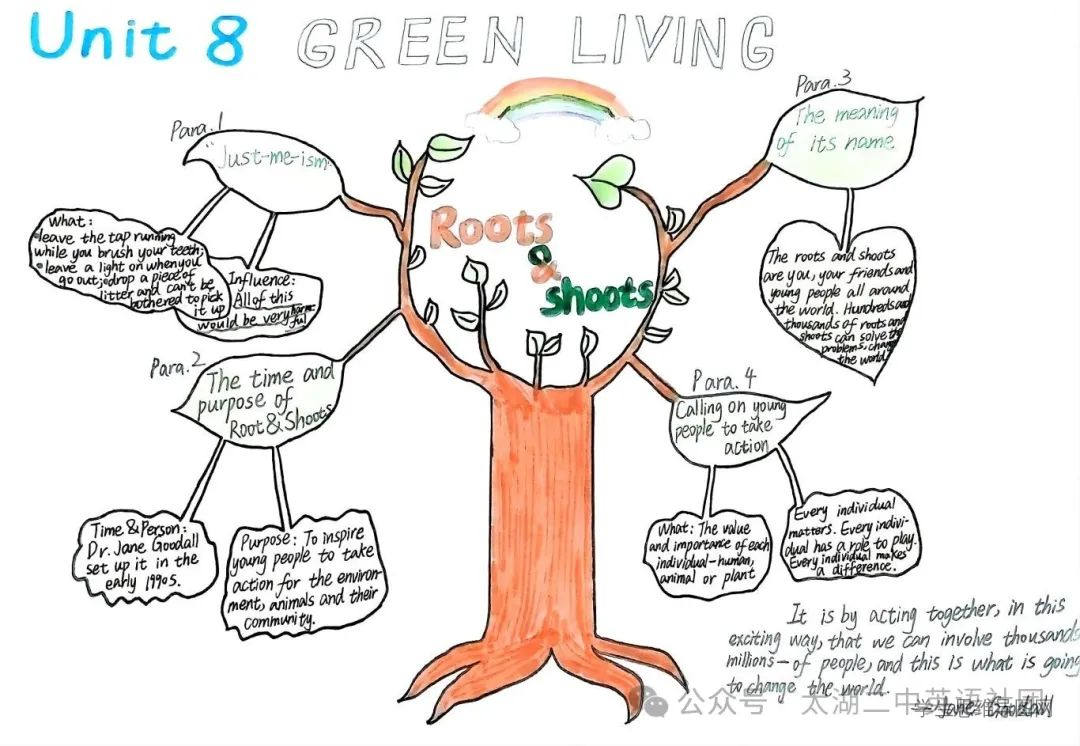 Unit 8 GREEN LIVING
Para.1
Just-me-ism
What:
•leave the tap running
while you brush your teeth;
•leave a light on when you
go out;•drop a piece of
litter and can't be
bothered to pick
it up
Influence:
All of this
would be very harm-
ful
Para.2
The time and
purpose of
Root&Shoots
Time &Person:
Dr. Jane Goodall
set up it in the
early 1990s.
Purpose: To inspire
young people to take
action for the environ-
ment, animals and their
community.
Roots
&
shoots
Para.3
The meaning
of its name
The roots and shoots
are you, your friends and
young people all around
the world. Hundreds and
thousands of roots and
shoots can solve the
problems, change
the world
Para.4
Calling on young
people to take
action
What: The value
and importance of each
individual-human,
animal or plant
Every individual
matters. Every indivi-
dual has a role to play.
Every individual makes
a difference.
It is by acting together, in this
exciting way, that we can involve thousands
millions—of people, and this is what is going
to change the world.
—Jane Goodall
公众号·太湖二中英语社团